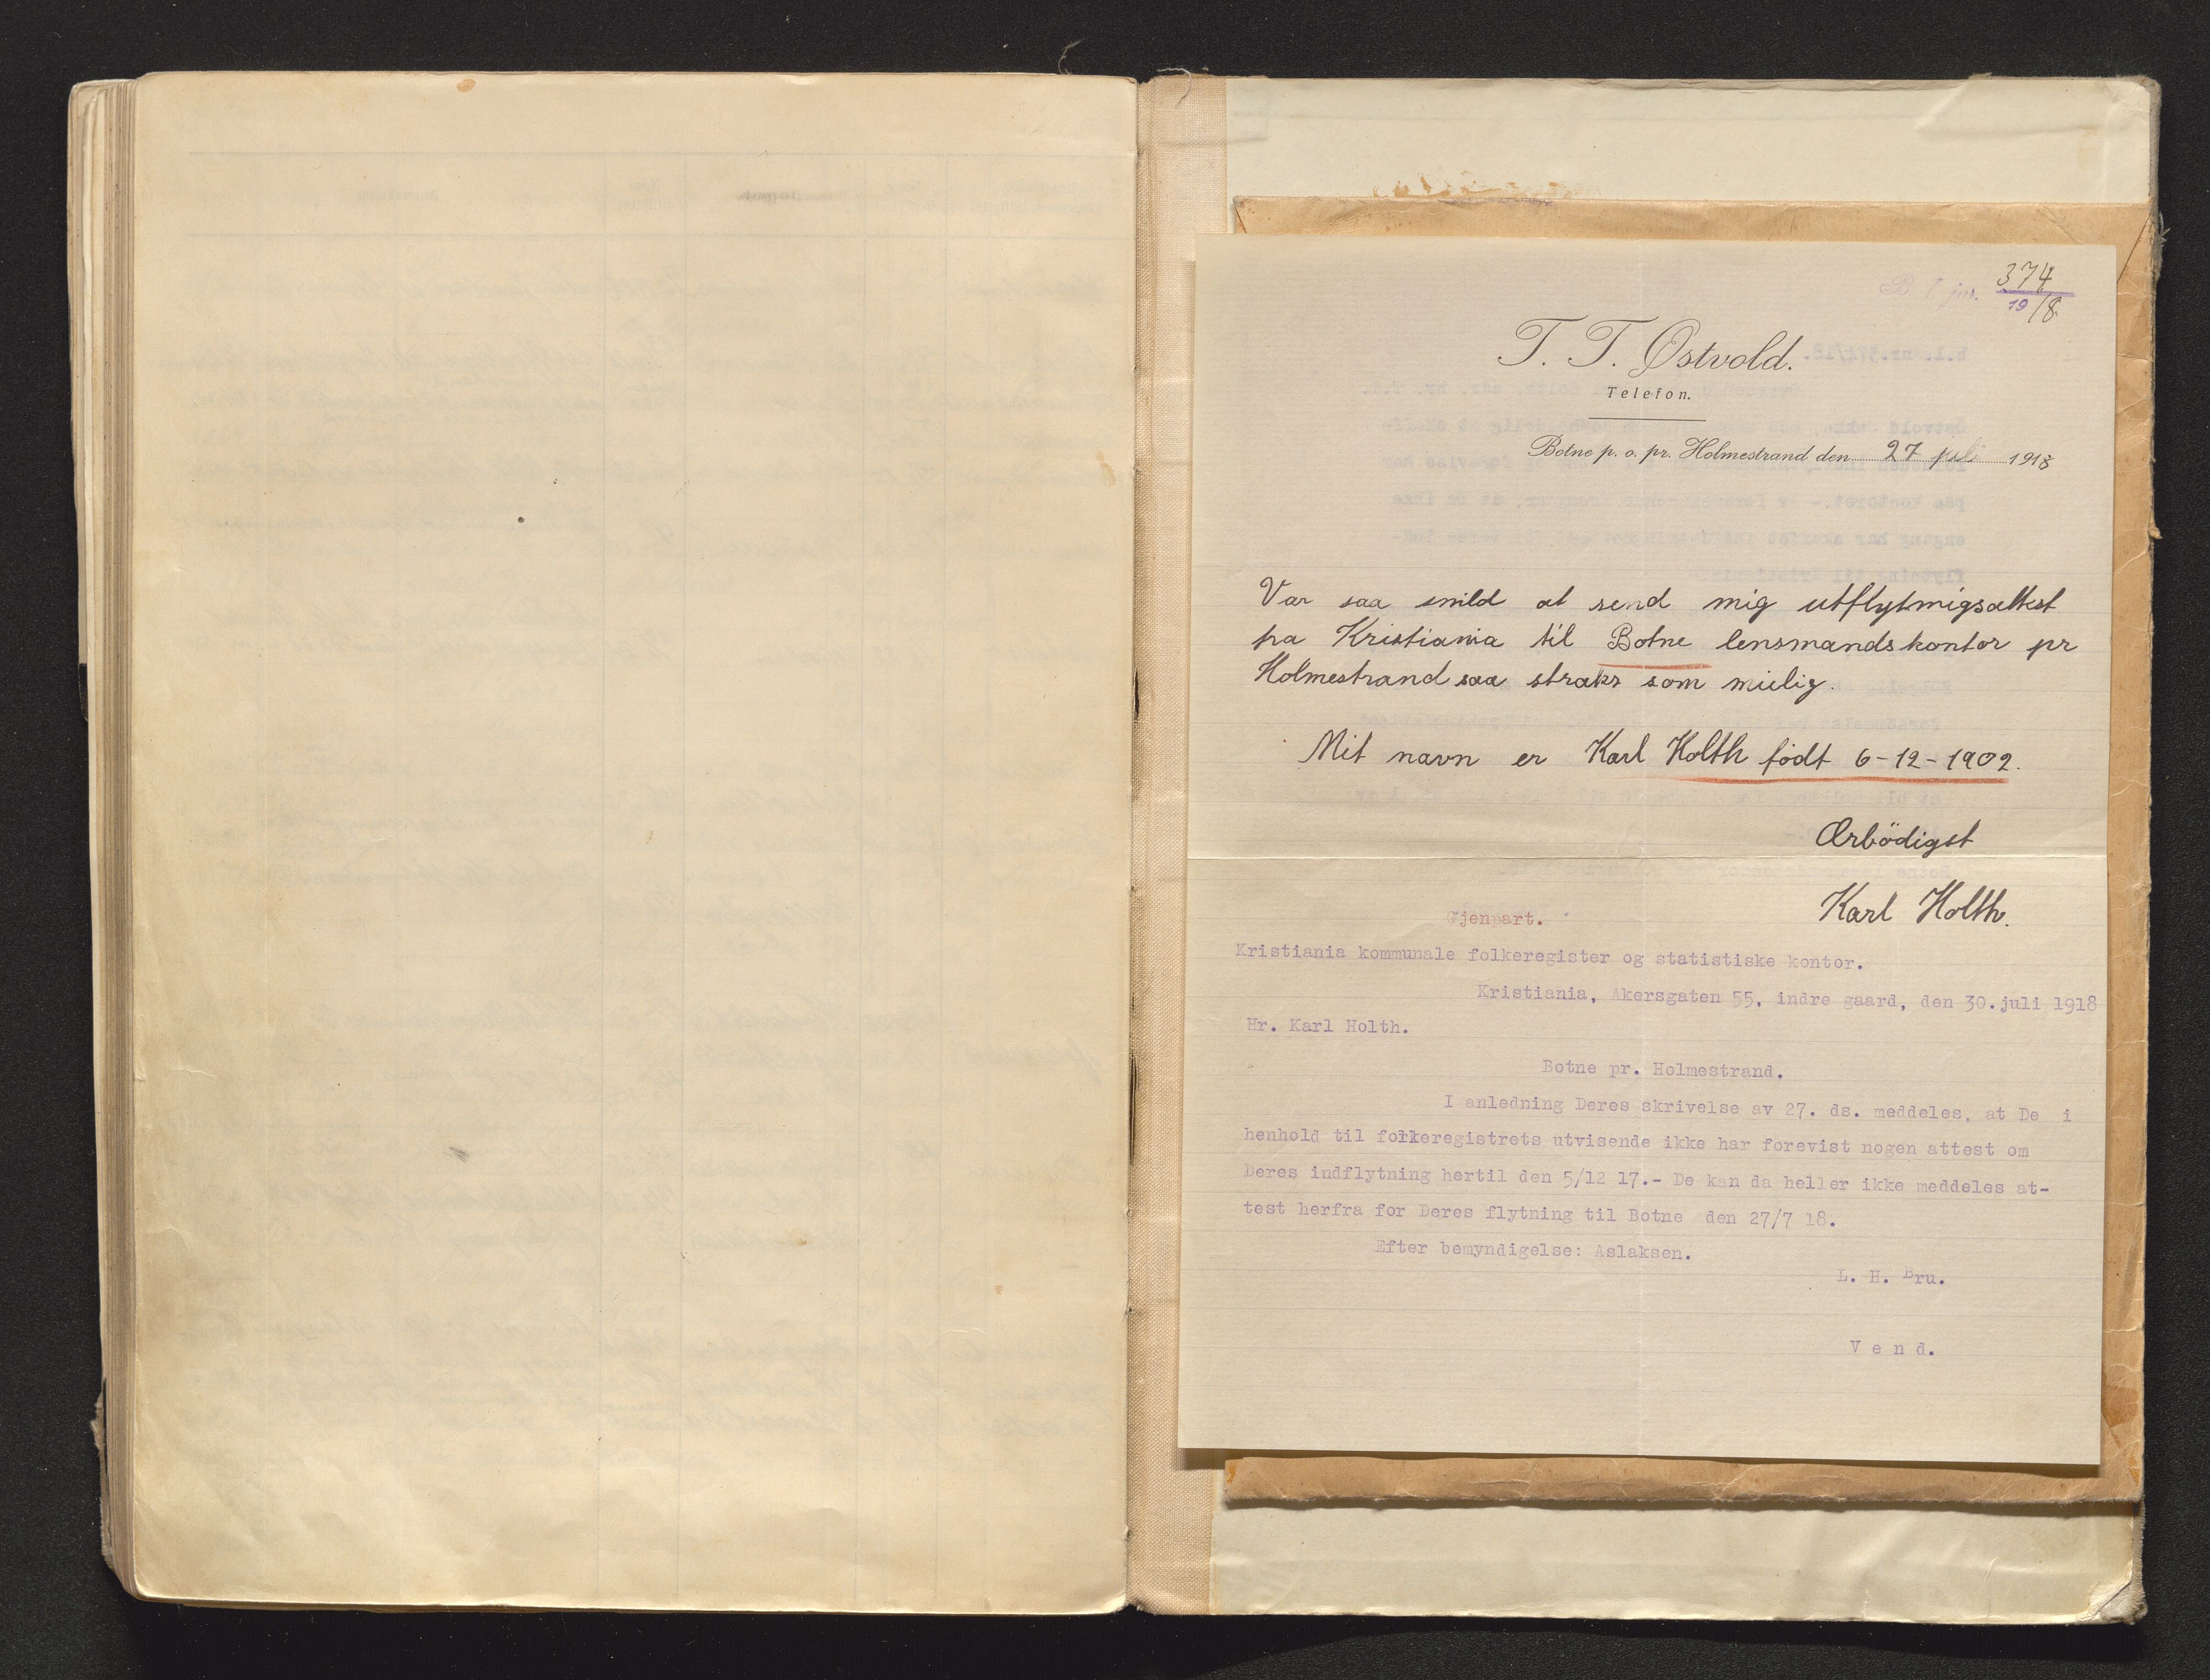 B. l. jnr. 374
19 18
T. T. Østvold.
Telefon.
Botne p. o. pr. Holmestrand den 27 juli 1918
Var saa snild at send mig utflytmigsattest
pa Kristiania til Botne lensmandskontor pr
Holmestrand saa straks som mulig.
Mit navn er Karl Holth födt 6-12-1902.
Ærbödigst
Karl Holth.
Gjenpart.
Kristiania kommunale folkeregister og statistiske kontor.
Kristiania, Akersgaten 55, indre gaard, den 30.juli 1918
Hr. Karl Holth.
Botne pr. Holmestrand.
I anledning Deres skrivelse av 27. ds. meddeles, at De i
henhold til folkeregistrets utvisende ikke har forevist nogen attest om
Deres indflytning hertil den 5/12 17.- De kan da heller ikke meddeles at-
test herfra for Deres flytning til Botne den 27/7 18.
Efter bemyndigelse: Aslaksen.
L. H. Bru.
V e n d.